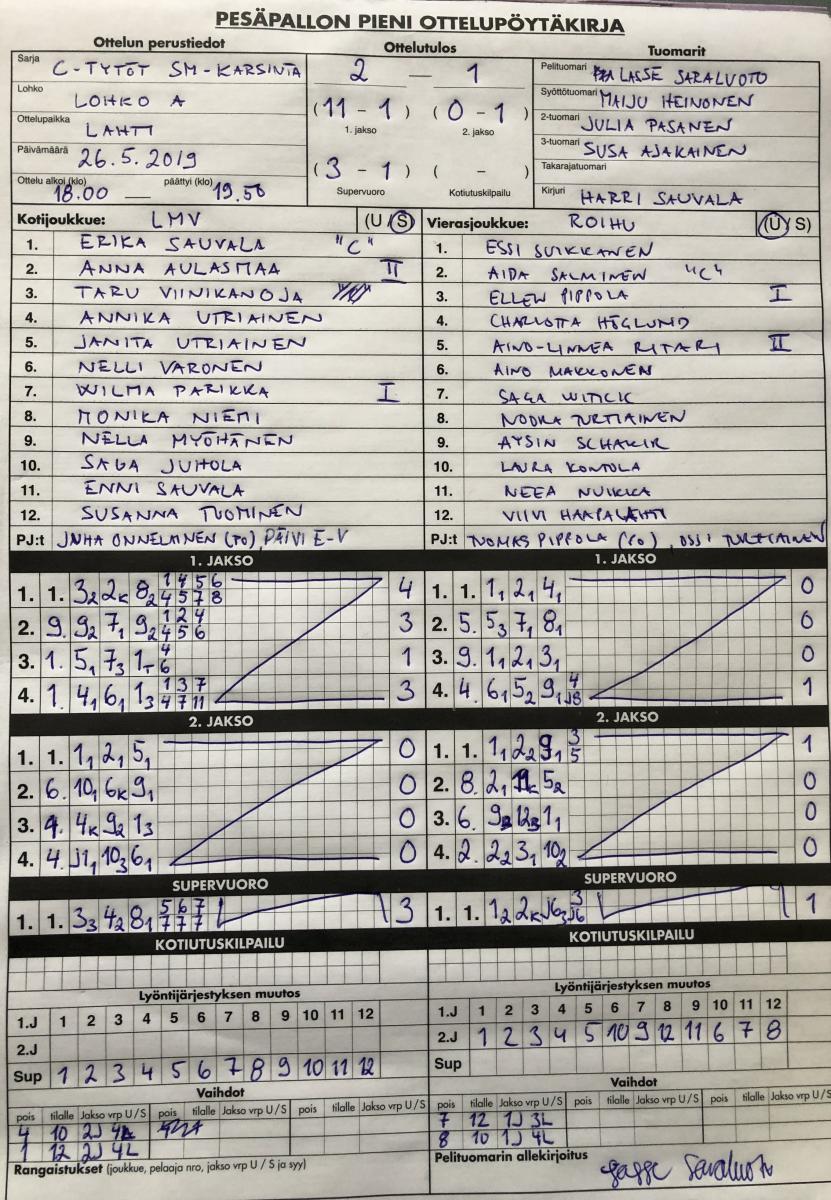 PESÄPALLON PIENI OTTELUPÖYTÄKIRJA
Ottelun perustiedot
Sarja C-TYTÖT SM-KARSINTA
Lohko LOHKO A
Ottelupaikka LAHTI
Päivämäärä 26.5.2019
Ottelu alkoi (klo) 18.00 — päättyi (klo) 19.50
Ottelutulos
2 — 1
(11 - 1) (0 - 1)
1. jakso 2. jakso
(3 - 1) ( - )
Supervuoro Kotiutuskilpailu
Tuomarit
Pelituomari LASSE SARALUOTO
Syöttötuomari MAIJU HEINONEN
2-tuomari JULIA PASANEN
3-tuomari SUSA AJAKAINEN
Takarajatuomari
Kirjuri HARRI SAUVALA
Kotijoukkue: LMV (U / S)
1. ERIKA SAUVALA "C"
2. ANNA AULASMAA II
3. TARU VIINIKANOJA
4. ANNIKA UTRIAINEN
5. JANITA UTRIAINEN
6. NELLI VARONEN
7. WILMA PARIKKA I
8. MONIKA NIEMI
9. NELLA MYÖHÄNEN
10. SAGA JUHOLA
11. ENNI SAUVALA
12. SUSANNA TUOMINEN
PJ:t JUHA ONNELAINEN (PO), PÄIVI E-V
Vierasjoukkue: ROIHU (U / S)
1. ESSI SUIKKANEN
2. AIDA SALMINEN "C"
3. ELLEN PIPPOLA I
4. CHARLOTTA HÖGLUND
5. AINO-LINNEA RITARI II
6. AINO MAKKONEN
7. SAGA WITICK
8. NOORA TURTIAINEN
9. AYSIN SCHAKIR
10. LAURA KONTOLA
11. NEEA NUIKKA
12. VIIVI HAAPALAHTI
PJ:t TUOMAS PIPPOLA (PO), OSSI TURTIAINEN
1. JAKSO
1. 1. 32 2K 82 1 4 5 6 4
4 5 7 8
2. 9. 92 71 92 1 2 4 3
4 5 6
3. 1. 51 73 1T 4 1
6
4. 1. 41 61 13 1 3 7 3
4 7 11
2. JAKSO
1. 1. 11 21 51 0
2. 6. 101 6K 91 0
3. 4. 4K 92 13 0
4. 4. J11 103 61 0
SUPERVUORO
1. 1. 33 42 81 5 6 7 3
7 7 7
KOTIUTUSKILPAILU
1. JAKSO
1. 1. 11 21 41 0
2. 5. 53 71 81 0
3. 9. 11 21 31 0
4. 4. 61 52 91 4 1
J8
2. JAKSO
1. 1. 11 22 91 3 1
5
2. 8. 21 52 0
3. 6. 11 0
4. 2. 22 31 102 0
SUPERVUORO
1. 1. 12 2K J63 3 1
J6
KOTIUTUSKILPAILU
Lyöntijärjestyksen muutos
1.J 1 2 3 4 5 6 7 8 9 10 11 12
2.J
Sup 1 2 3 4 5 6 7 8 9 10 11 12
Vaihdot
pois tilalle Jakso vrp U / S pois tilalle Jakso vrp U / S pois tilalle
4 10 2J
1 12 2J 4L
Rangaistukset (joukkue, pelaaja nro, jakso vrp U / S ja syy)
Lyöntijärjestyksen muutos
1.J 1 2 3 4 5 6 7 8 9 10 11 12
2.J 1 2 3 4 5 10 9 12 11 6 7 8
Sup
Vaihdot
pois tilalle Jakso vrp U / S pois tilalle Jakso vrp U / S pois tilalle
7 12 1J 3L
8 10 1J 4L
Pelituomarin allekirjoitus